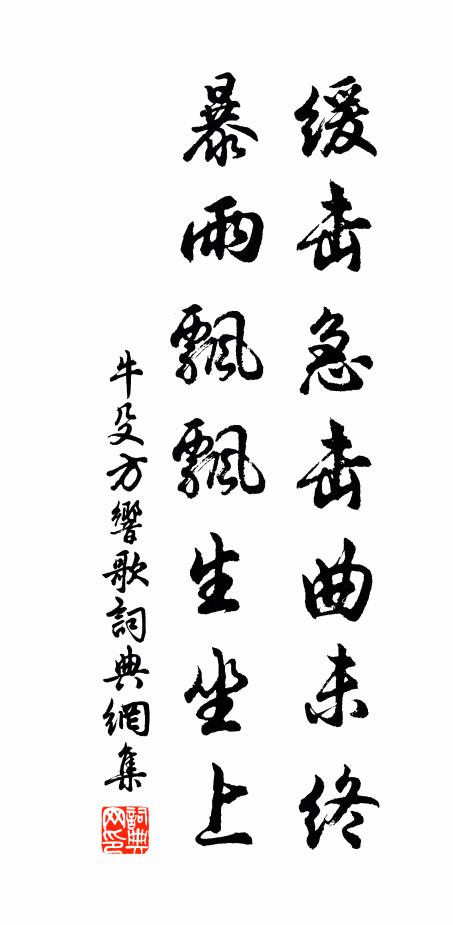 缓击急击曲未终
暴雨飘飘生坐上
牛殳方響歌詞典網集
詞典网印